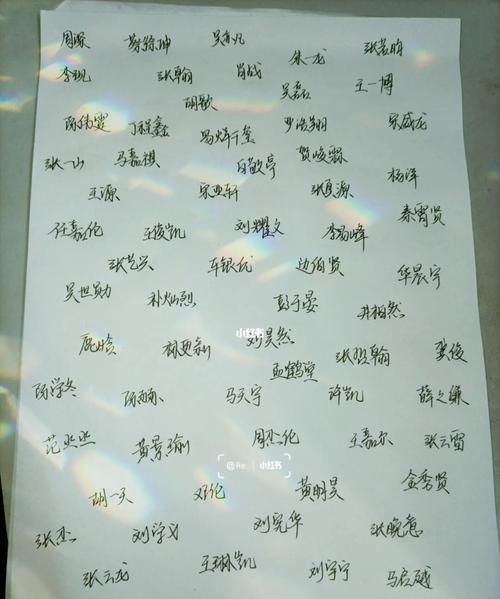 周深 蔡徐坤 吴亦凡 朱一龙 张若昀
李现 张翰 肖战 吴磊 王一博
胡歌
陈伟霆 丁程鑫 易烊千玺 罗浩翔 宋威龙
张一山 马嘉祺 白敬亭 贺峻霖 杨洋
王源 宋亚轩 张真源 秦霄贤
任嘉伦 王俊凯 刘耀文 李易峰
张艺兴 车银优 边伯贤 华晨宇
吴世勋 朴灿烈 彭于晏 井柏然
鹿晗 林更新 刘昊然 张哲瀚 龚俊
小红书
孟鹤堂
陈学冬 马天宇 许凯 薛之谦
范丞丞 黄景瑜 周杰伦 王嘉尔 张云雷
小红书
胡一天 邓伦 黄明昊 金秀贤
张杰 刘学义 刘宪华 张晚意
张云龙 王琳凯 刘宇宁 马启越